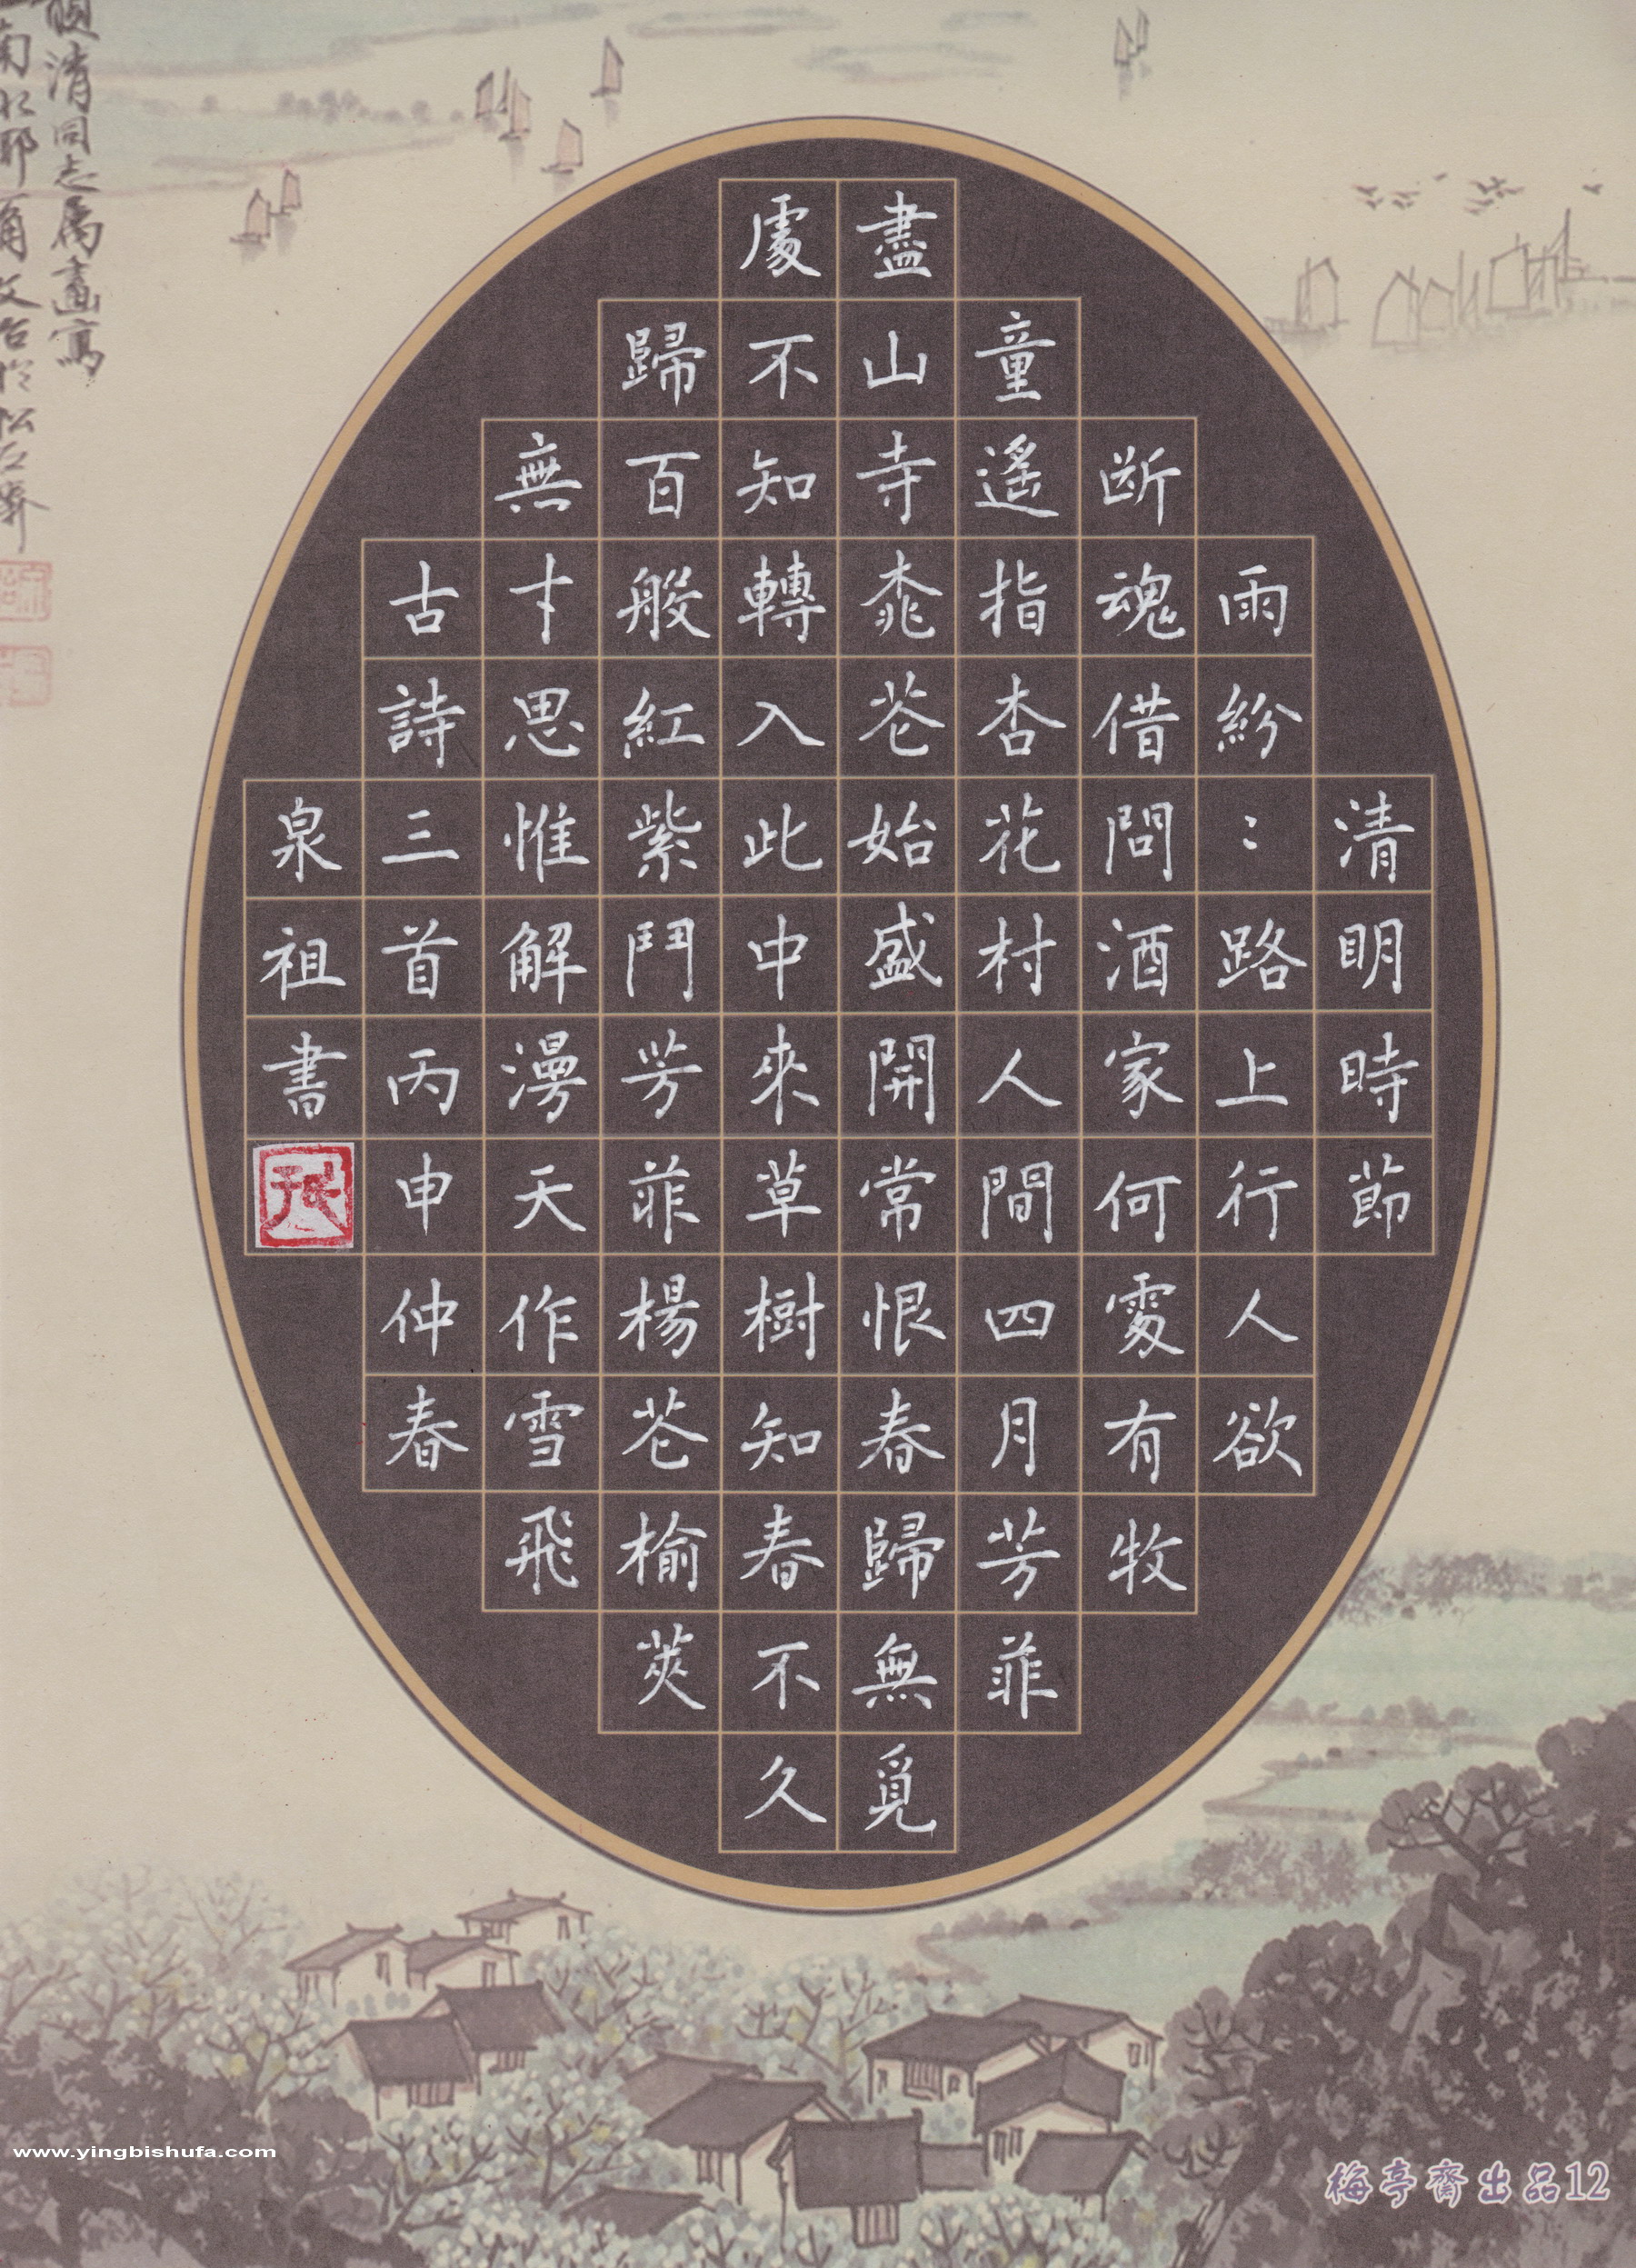 清明時節
雨紛〻路上行人欲
断魂借問酒家何處有牧
童遙指杏花村人間四月芳菲
盡山寺桃芲始盛開常恨春歸無覓
處不知轉入此中來草樹知春不久
歸百般紅紫鬥芳菲楊芲榆莢
無才思惟解漫天作雪飛
古詩三首丙申仲春
泉祖書
清同志属畫寫
www.yingbishufa.com
梅亭齋出品12